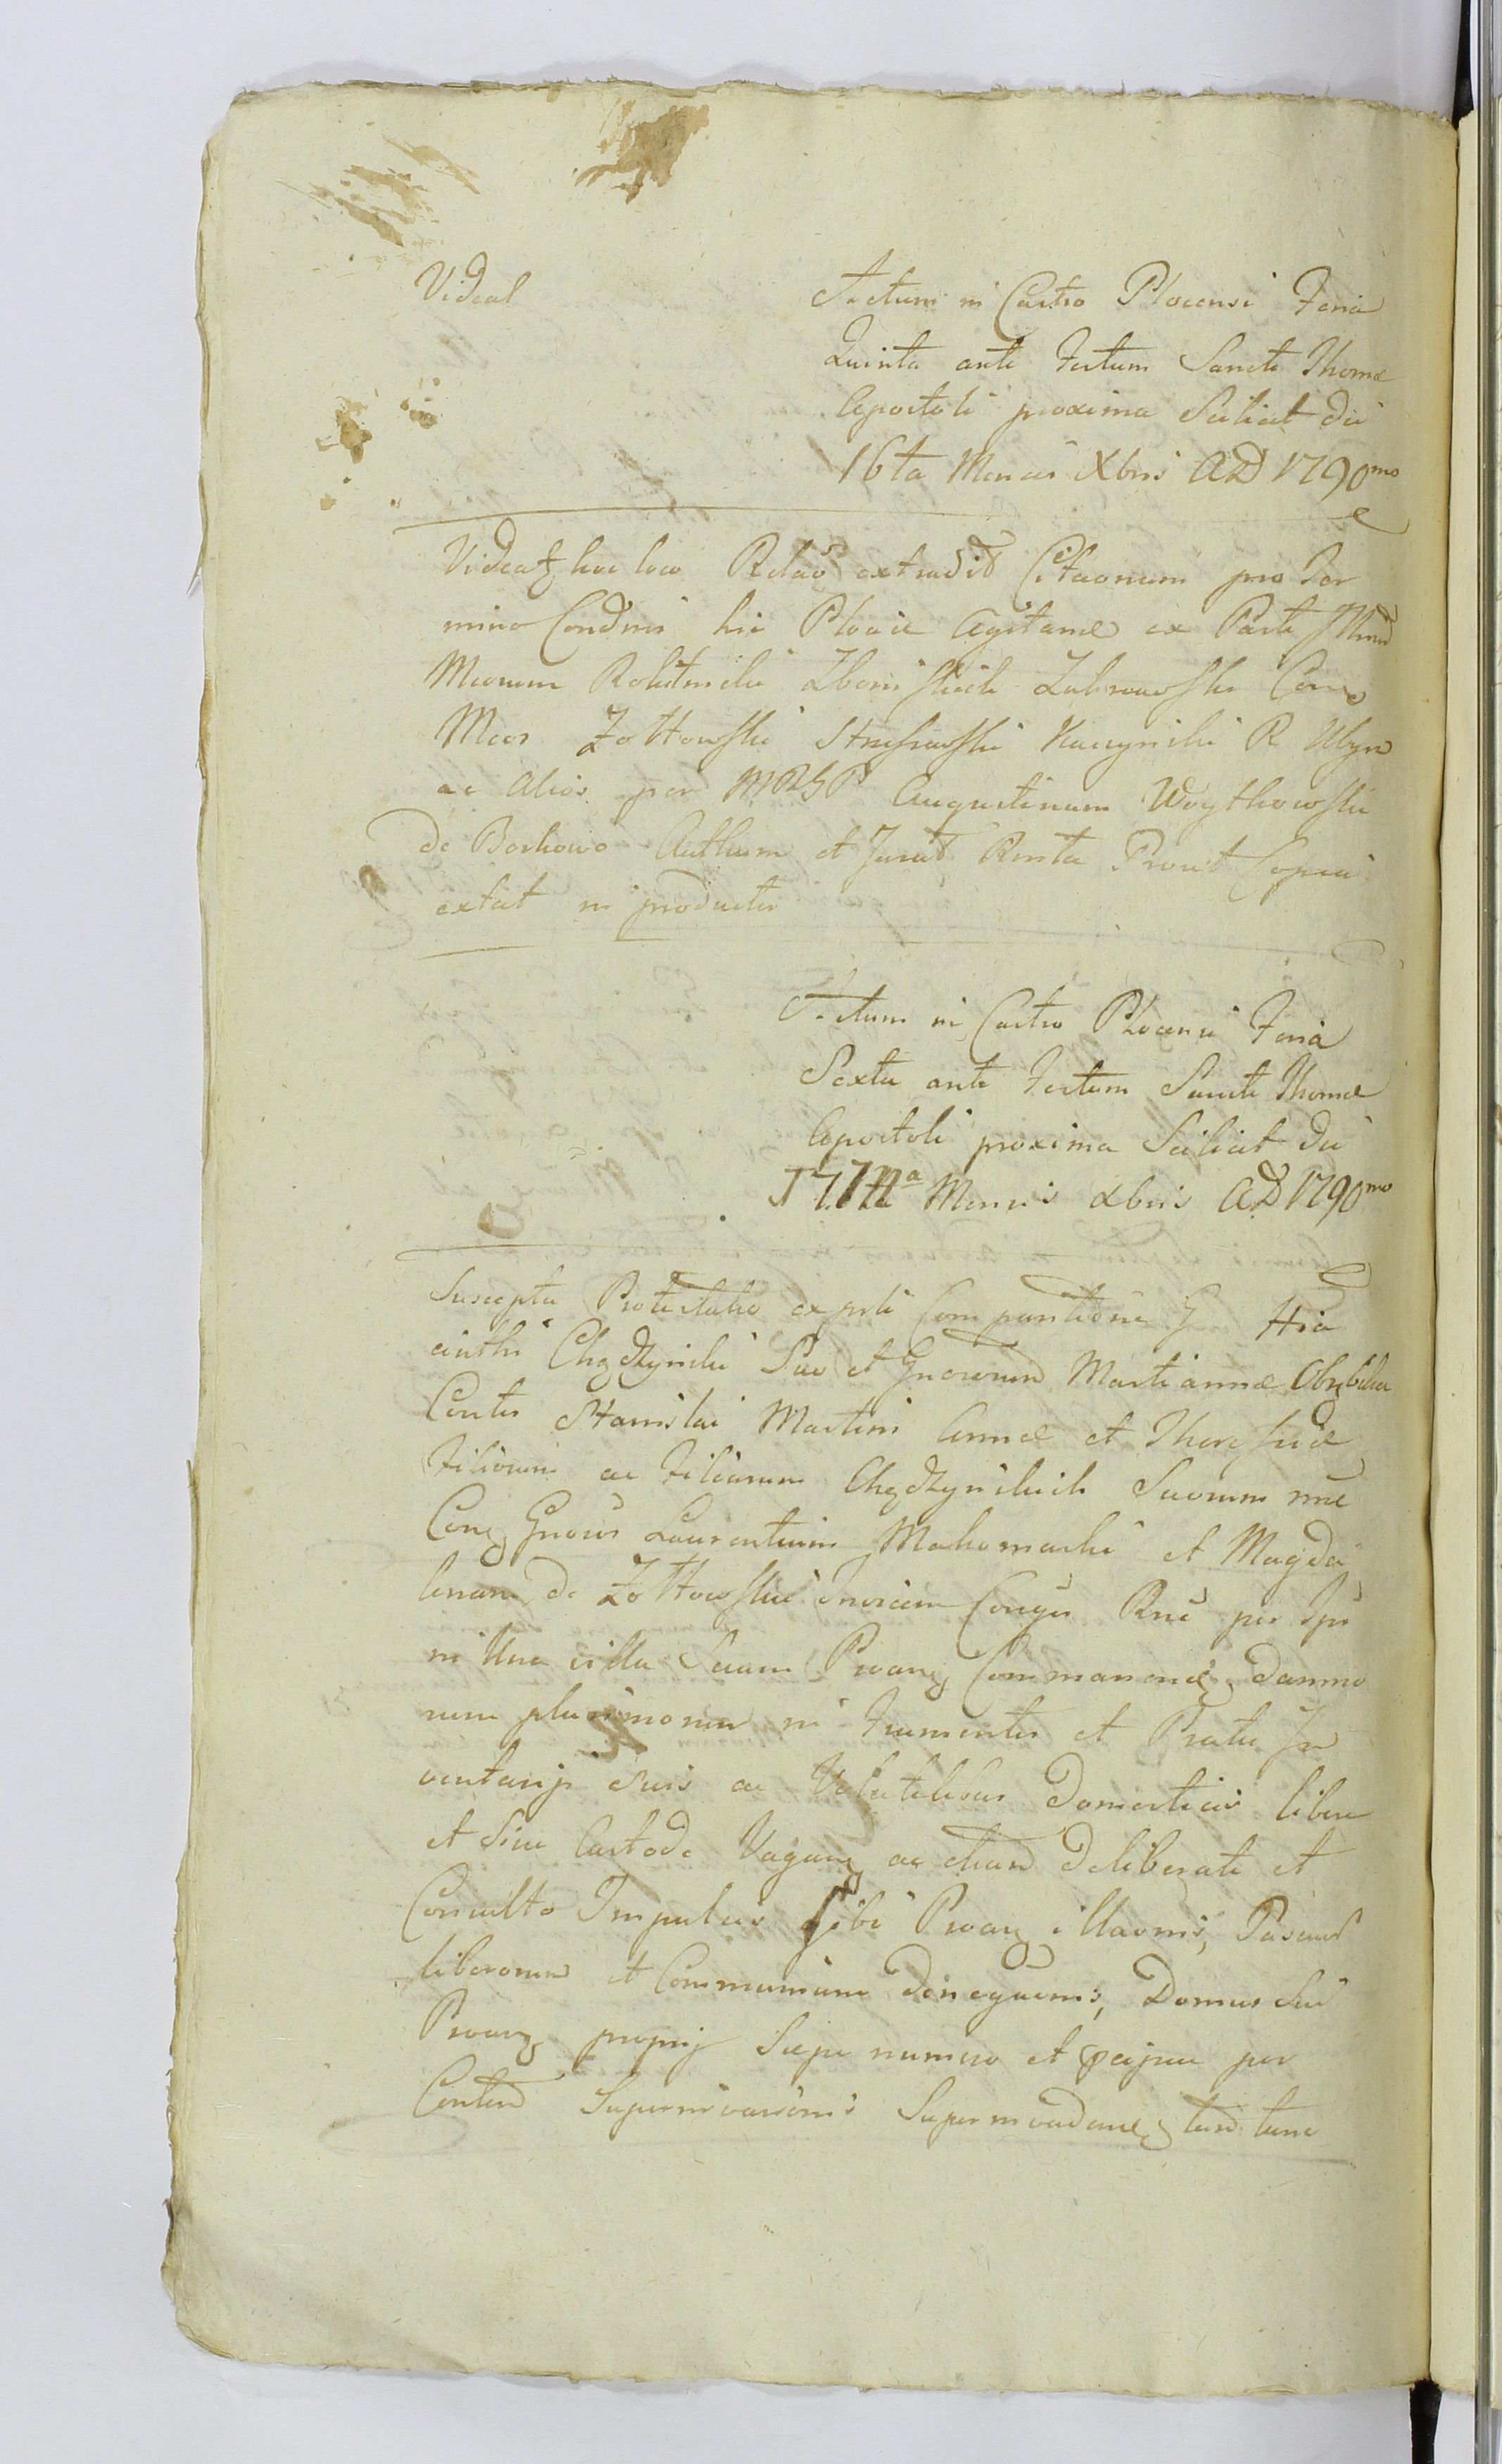 Videat
Actum in Castro Plocensi Feria
Quinta ante Festum Sancti Thomæ
Apostoli proxima Scilicet die
16ta Mensis Xbris AD 1790mo
Videatz hoc loco Relaõ extradit Citaonum pro Ter
mino Condnis hic Plociæ Agitandæ ex Parte
Meorum Rokitnicki Zboinskich Zabrowski Cona
Mcos Żołtowski Kuczynski R
ac Alios per MRGP Augustinum Woythowski
de Borkowo Authum et Jurat Rnita Prout Copia
extat in productis
Actum in Castro Plocensi Feria
Sexta ante Festum Sancti Thomæ
Apostoli proxima Scilicet die
17ma Mensis Xbris AD 1790mo
Suscepta Protestatio ex parte Comparentis G Hia
cinthi Chądzynski Suo et Gnosorum Martiannæ
Consortis Stanislai Martini Annæ et Theressiæ
Filiorum ac Filiarum Chądzynskich Suorum nne
Cona Gnosos Laurentium Makomaski et Magda
lenam de Żołtowskie Invicem Conges Rne per Ipos
in Una villa Secum Proan Commanen Damno
rum plurimorum in Frumentis et Pratis In
ventarijs Suis ac Volatilibus Domesticis libere
et Sine Custode Vagan ac etiam Deliberate et
Consulto Impulsis Sibi Proan illaonis, Pascuor
liberorum et Communium Denegaonis, Domus Sui
Proan proprij Sæpe numero et sæpius per
Conten Supernivasionis tum tunc